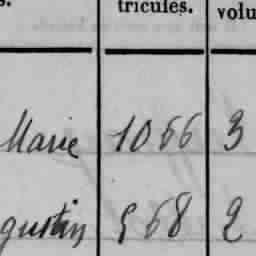 s. tricules. volu
Marie 1066 3
gustin 568 2